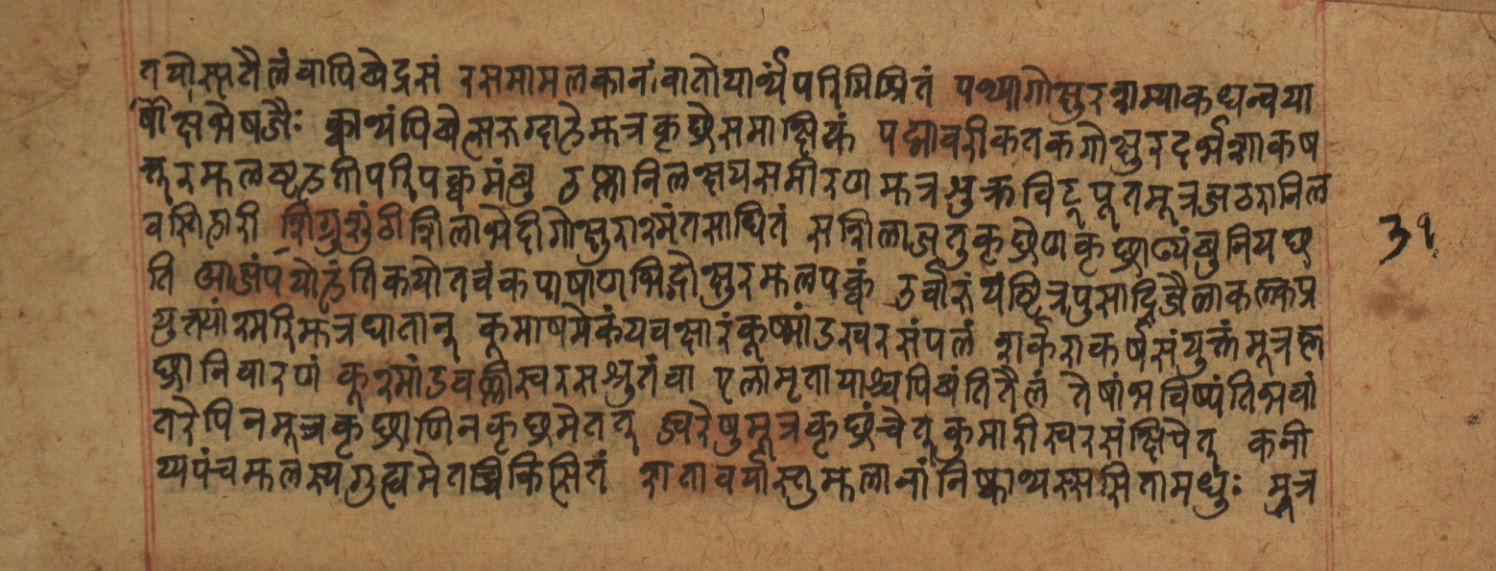 तयोस्सतैलं वापि पिबेद्रसं रसमामलकानां वातोयार्थं परिमिश्रितं पथ्यागोक्षुरश्राम्याकधन्वया
षाक्षभेषजैः क्वाथं पिबेत्सरुग्दाहे मूत्रकृछ्रे समाक्षिकं पद्मावरीकतकगोक्षुरदर्भशाकष
क्षुरमूलबृहतीपरिपक्वमंबु हन्नानिलक्षयसमीरणमूत्रशुक्रविट्पूतमूत्रजठरानिल
वस्तिहारी शिग्रुशुंठीशिलाभेदीगोक्षुरारमंतसाधितं सशिलाजतुकृछ्रेणकृछ्राण्यंबुनियछ
ति आजं पयोहंतिकयोतवंकपाषाणभिद्गोक्षुरमूलपक्वं उर्वारुयष्टित्रपुसाद्रिजैलाकल्कप्र
युक्तयांश्मरिमूत्रघातान् कूमाषमेकं यवक्षारं कूष्मांडस्वरसं पलं शर्कराकर्षसंयुक्तं मूत्रकृ
छ्रानिवारणं कूश्मांडवल्लीस्वरसश्रुतं वा एलामृतायाश्चपिबंतितैलं तेषां भविष्यंतिभवां
तरेपि नमूत्रकृछ्राणिनकृछ्रमेतत् ज्वरेषुमूत्रकृछ्रंचेत् कुमारीस्वरसं क्षिपेत् कनी
य्यपंचमूलस्यगुह्यमेतच्चिकित्सितं शतावर्यास्तुमूलानां निष्क्वाथस्ससितामधुः मूत्र
३१